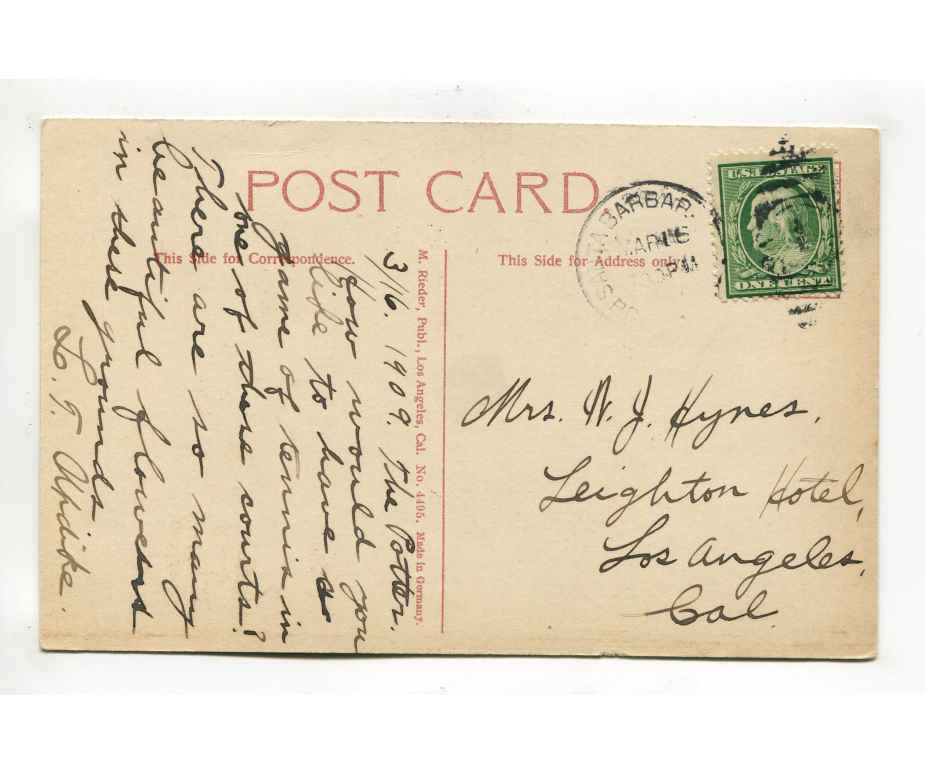 POST CARD
This Side for Correspondence.
This Side for Address only
M. Rieder, Publ., Los Angeles, Cal. No. 4495. Made in Germany.
3/16. 1909. The Potter.
How would you
like to have a
game of tennis in
one of these courts?
There are so many
beautiful flowers
in these grounds
L. T. Updike.
U.S. POSTAGE
ONE CENT
TA BARBAR
MAR 16
PM
Mrs. N. J. Hynes,
Leighton Hotel,
Los Angeles,
Cal.